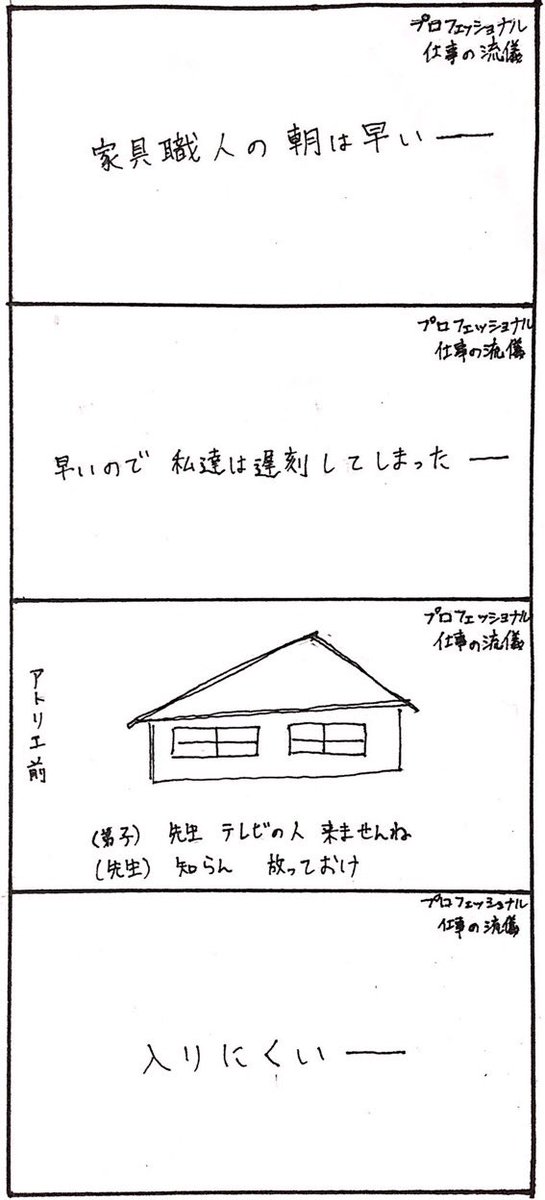 プロフェッショナル
仕事の流儀
家具職人の朝は早い──
プロフェッショナル
仕事の流儀
早いので 私達は遅刻してしまった──
プロフェッショナル
仕事の流儀
アトリエ前
(弟子) 先生 テレビの人 来ませんね
(先生) 知らん 放っておけ
プロフェッショナル
仕事の流儀
入りにくい──